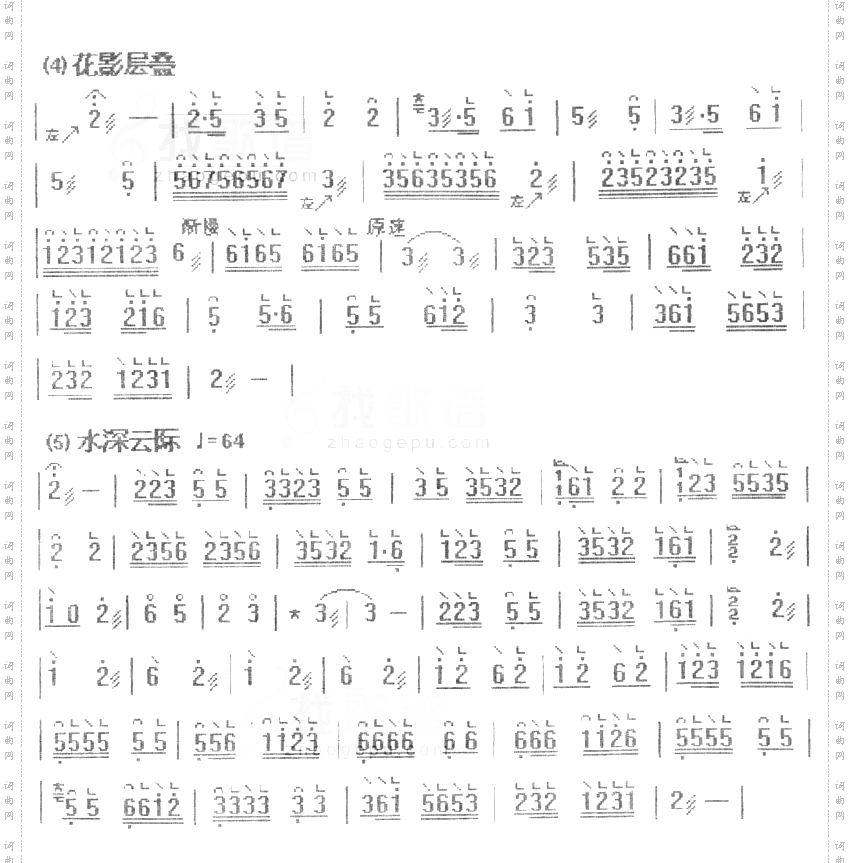 (4) 花影层叠
左 2 — | 2·5 3 5 | 2 2 | 3·5 6 1 | 5 5 | 3·5 6 1 |
5 5 | 56756567 左 3 | 35635356 左 2 | 23523235 左 1 |
渐慢 原速
12312123 6 | 6165 6165 | 3 3 | 323 535 | 661 232 |
123 216 | 5 5·6 | 5 5 612 | 3 3 | 361 5653 |
232 1231 | 2 — |
(5) 水深云际 ♩=64
2 — | 223 5 5 | 3323 5 5 | 3 5 3532 | 161 2 2 | 123 5535 |
2 2 | 2356 2356 | 3532 1·6 | 123 5 5 | 3532 161 | 2 2 |
1 0 2 | 6 5 | 2 3 | * 3 | 3 — | 223 5 5 | 3532 161 | 2 2 |
1 2 | 6 2 | 1 2 | 6 2 | 1 2 6 2 | 1 2 6 2 | 123 1216 |
5555 5 5 | 556 1123 | 6666 6 6 | 666 1126 | 5555 5 5 |
5 5 6612 | 3333 3 3 | 361 5653 | 232 1231 | 2 — |
找歌谱
zhaogepu.com
词曲网